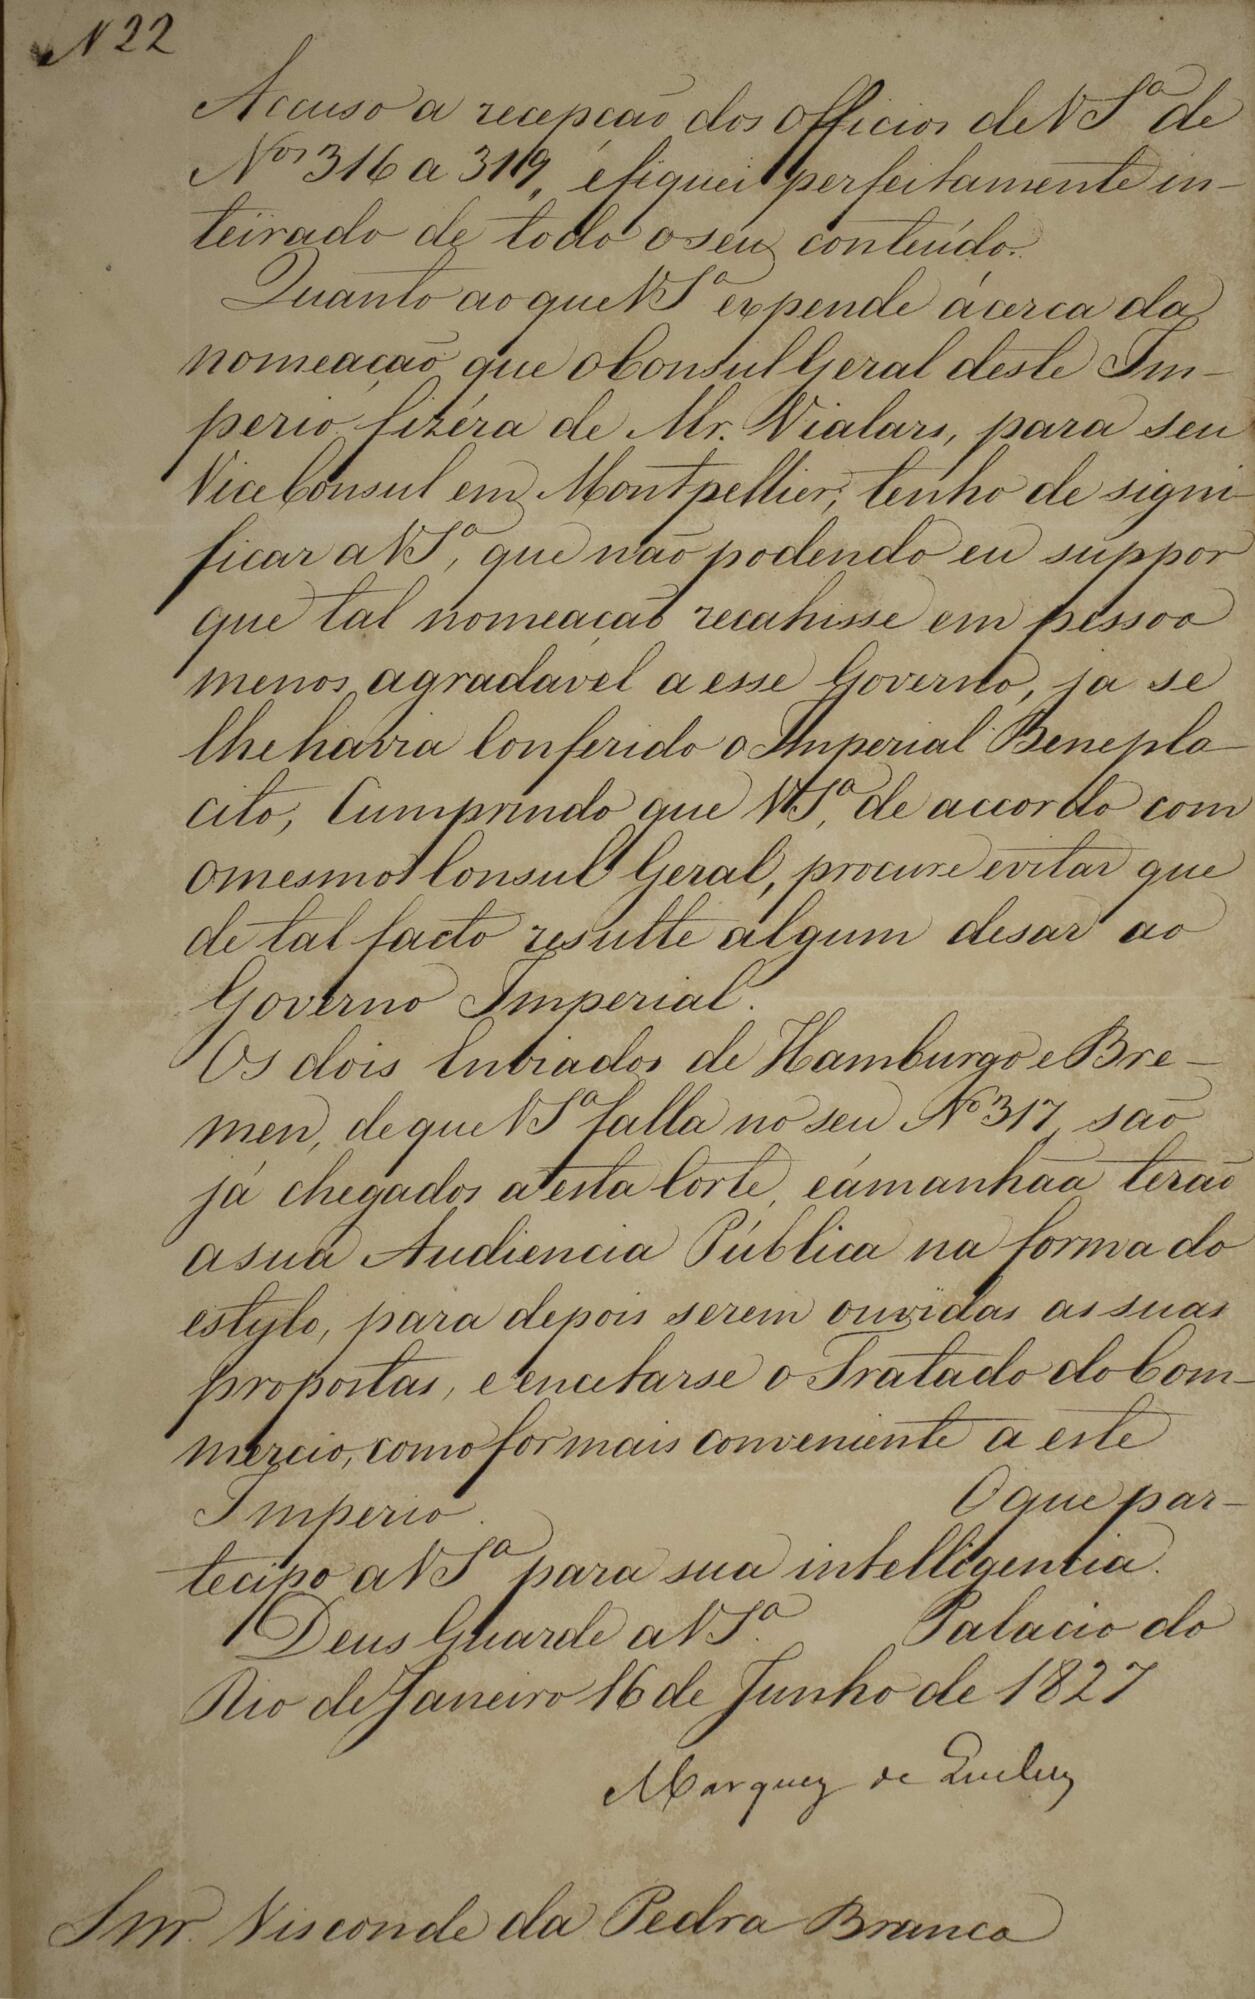 N 22
Accuso a recepcão dos Officios de VSª de
Nos 316 a 319, e fiquei perfeitamente in-
teirado de todo o seu conteúdo.
Quanto ao que VSª expende ácerca da
nomeação que o Consul Geral deste Im-
perio fizéra de Mr. Vialars, para seu
Vice Consul em Montpellier, tenho de signi-
ficar a VSª, que não podendo eu suppor
que tal nomeação recahisse em pessoa
menos agradável a esse Governo, ja se
lhe havia Conferido o Imperial Benepla-
cito, Cumprindo que VSª, de accordo com
o mesmo Consul Geral, procure evitar que
de tal facto resulte algum desar ao
Governo Imperial.
Os dois Enviados de Hamburgo e Bre-
men, de que VSª falla no seu Nº 317, são
já chegados a esta Corte, e ámanhãa terão
a sua Audiencia Pública na forma do
estylo, para depois serem ouvidas as suas
propostas, e encetarse o Tratado do Com-
mercio, como for mais conveniente a este
Imperio. O que par-
tecipo a VSª para sua intelligencia.
Deus Guarde a VSª. Palacio do
Rio de Janeiro 16 de Junho de 1827
Marquez de Queluz
Snr. Visconde da Pedra Branca